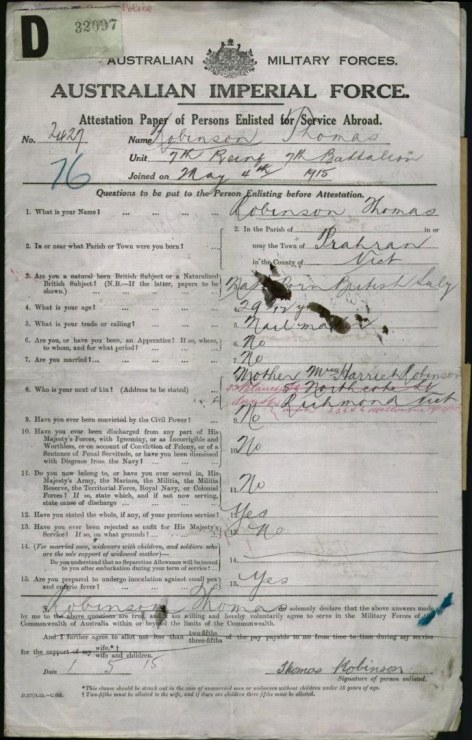 Police
D 32097
AUSTRALIAN MILITARY FORCES.
AUSTRALIAN IMPERIAL FORCE.
Attestation Paper of Persons Enlisted for Service Abroad.
No. 2427 Name Robinson Thomas
Unit 7th Reinf 7th Battalion
76 Joined on May 4th 1915
Questions to be put to the Person Enlisting before Attestation.
1. What is your Name? ... Robinson Thomas
2. In or near what Parish or Town were you born? ... 2. In the Parish of in or
near the Town of Prahran
in the County of Vict
3. Are you a natural born British Subject or a Naturalized British Subject? (N.B.—If the latter, papers to be shown.) Nat Born British
4. What is your age? ... 4. 29
5. What is your trade or calling? ... 5. Nail maker
6. Are you, or have you been, an Apprentice? If so, where, to whom, and for what period? ... 6. No
7. Are you married? ... 7. No
8. Who is your next of kin? (Address to be stated) Mother Mrs Harriet Robinson
Northcote St
Richmond Vict
9. Have you ever been convicted by the Civil Power? 9. No
10. Have you ever been discharged from any part of His Majesty's Forces, with Ignominy, or as Incorrigible and Worthless, or on account of Conviction of Felony, or of a Sentence of Penal Servitude, or have you been dismissed with Disgrace from the Navy? ... 10. No
11. Do you now belong to, or have you ever served in, His Majesty's Army, the Marines, the Militia, the Militia Reserve, the Territorial Force, Royal Navy, or Colonial Forces? If so, state which, and if not now serving, state cause of discharge ... 11. No
12. Have you stated the whole, if any, of your previous service? Yes
13. Have you ever been rejected as unfit for His Majesty's Service? If so, on what grounds? No
14. (For married men, widowers with children, and soldiers who are the sole support of widowed mother)—
Do you understand that no Separation Allowance will be issued to you after embarkation during your term of service?
15. Are you prepared to undergo inoculation against small pox and enteric fever? 15. Yes
I, Robinson Thomas solemnly declare that the above answers made
by me to the above questions are true, and I am willing and hereby voluntarily agree to serve in the Military Forces of the
Commonwealth of Australia within or beyond the limits of the Commonwealth.
And I further agree to allot not less than two-fifths three-fifths of the pay payable to me from time to time during my service
for the support of my wife.*†
wife and children.
Date 1 5 15 Thomas Robinson
Signature of person enlisted.
*This clause should be struck out in the case of unmarried men or widowers without children under 18 years of age.
† Two-fifths must be allotted to the wife, and if there are children three-fifths must be allotted.